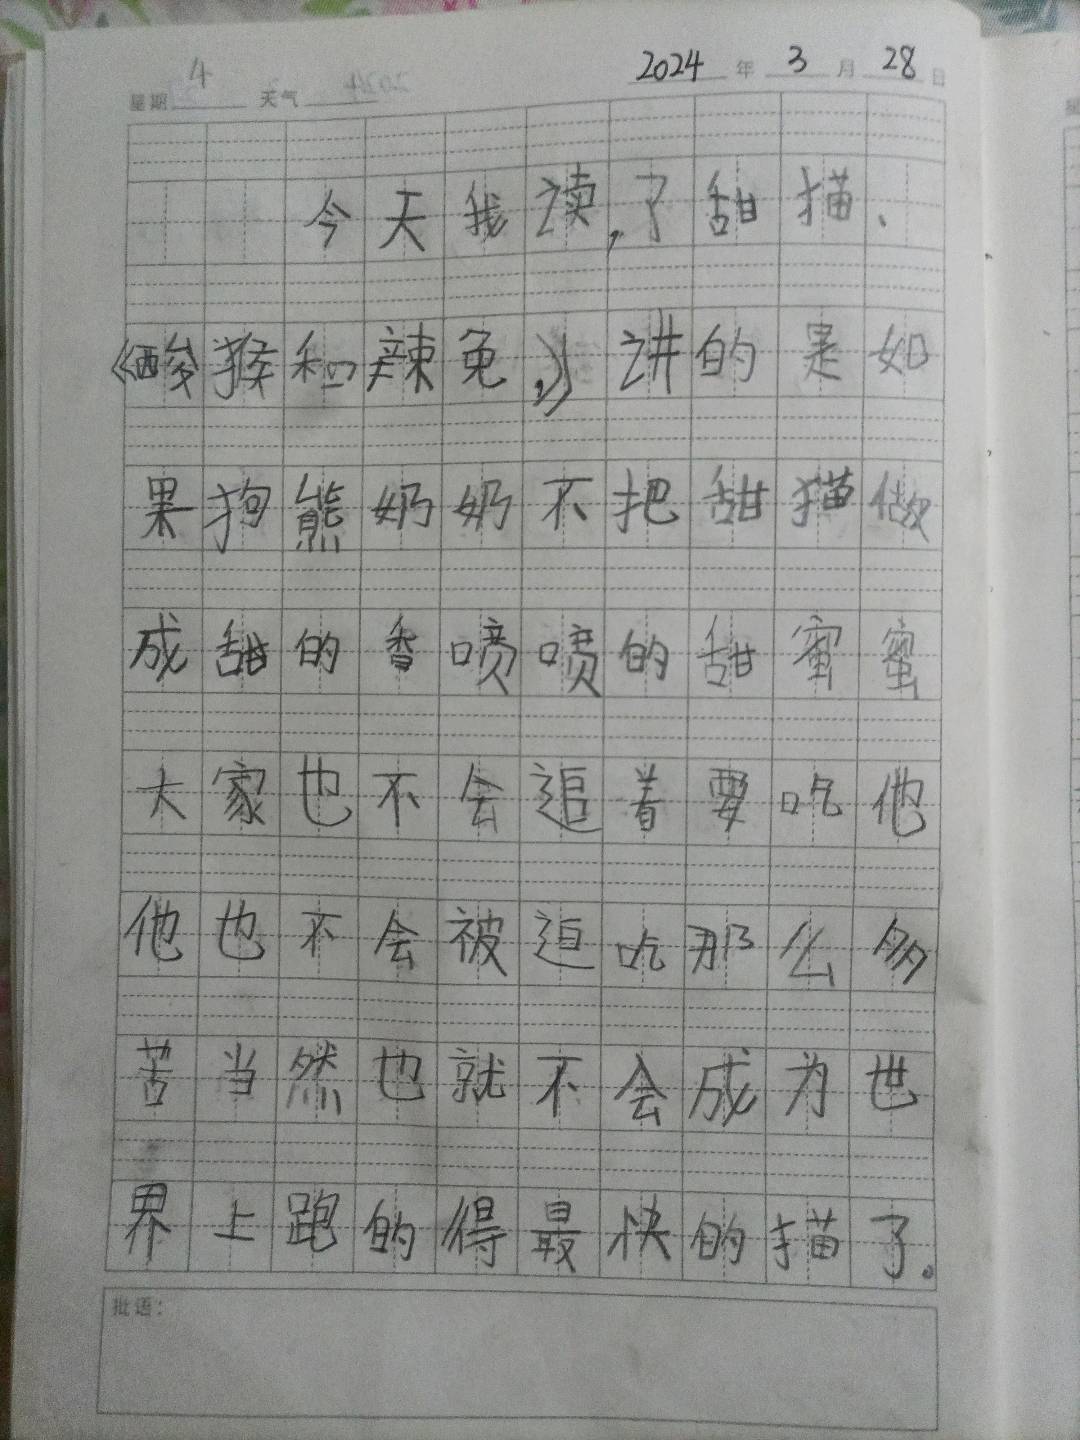 2024年3月28日
星期4 天气
今天我读,了甜猫、
《酸猴和辣兔,》讲的是如
果狗熊奶奶不把甜猫做
成甜的香喷喷的甜蜜蜜
大家也不会追着要吃他
他也不会被迫吃那么多
苦当然也就不会成为世
界上跑的得最快的猫了。
批语：